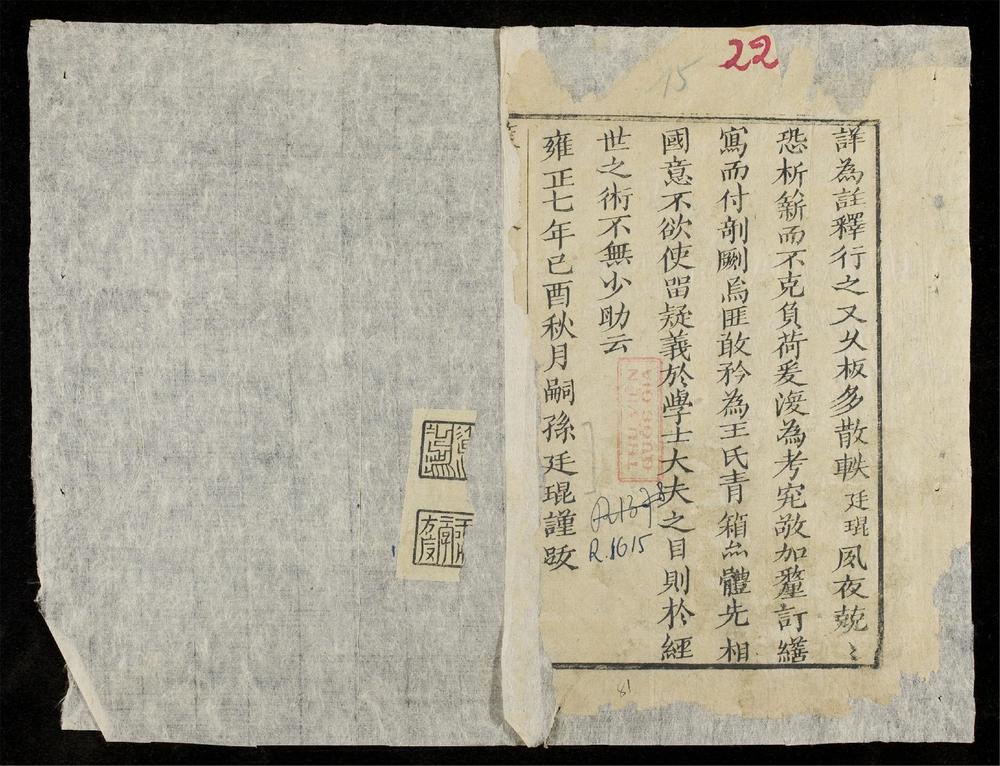 22
15
詳為註釋行之又久板多散軼廷琨夙夜兢〻
恐析薪而不克負荷爰浚為考究敬加釐訂繕
寫而付剞劂焉匪敢矜為王氏青箱亦體先相
國意不欲使畄疑義於學士大夫之目則於經
世之術不無少助云
雍正七年己酉秋月嗣孫廷琨謹跋
THU VIEN
QUOC GIA
R.1615
81